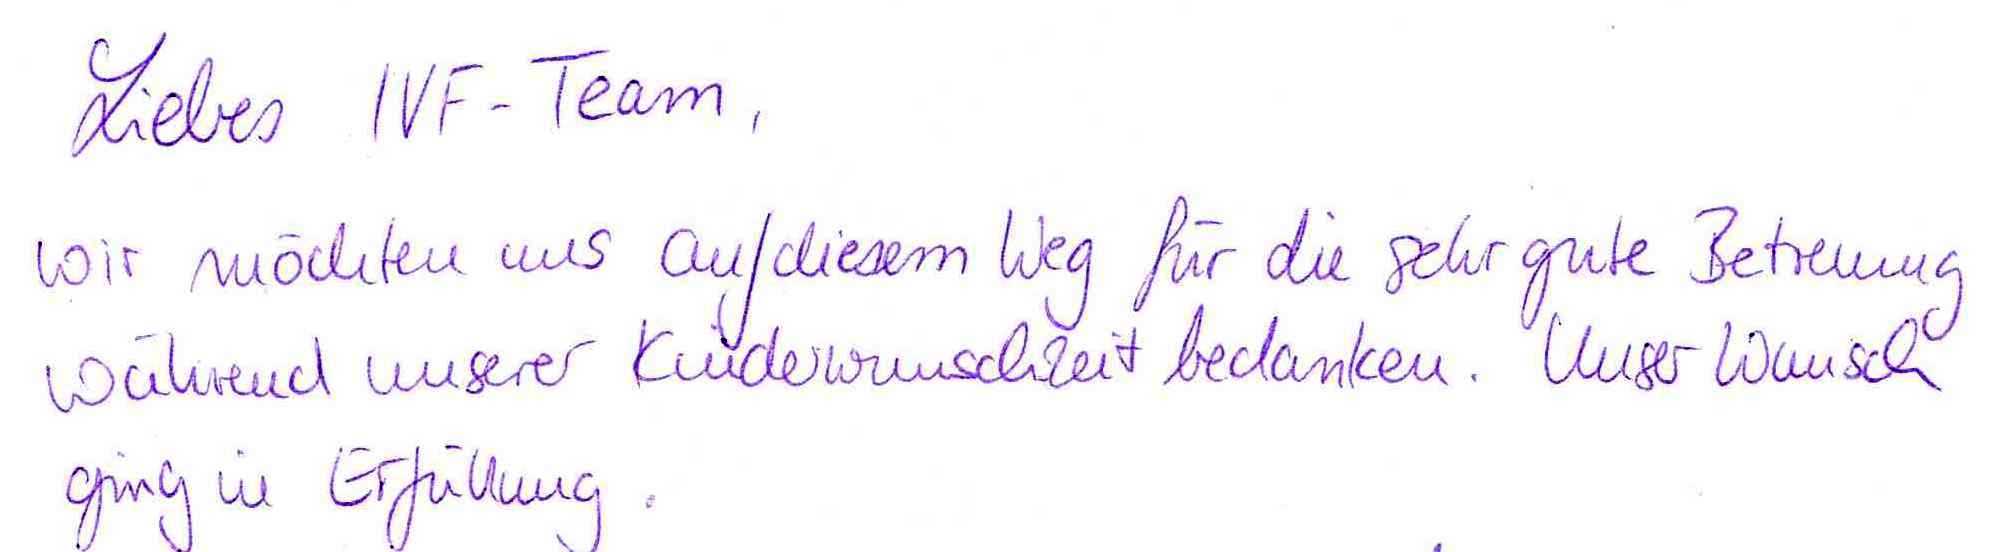 Liebes IVF-Team,
wir möchten uns auf diesem Weg für die sehr gute Betreuung
während unserer Kinderwunschzeit bedanken. Unser Wunsch
ging in Erfüllung.